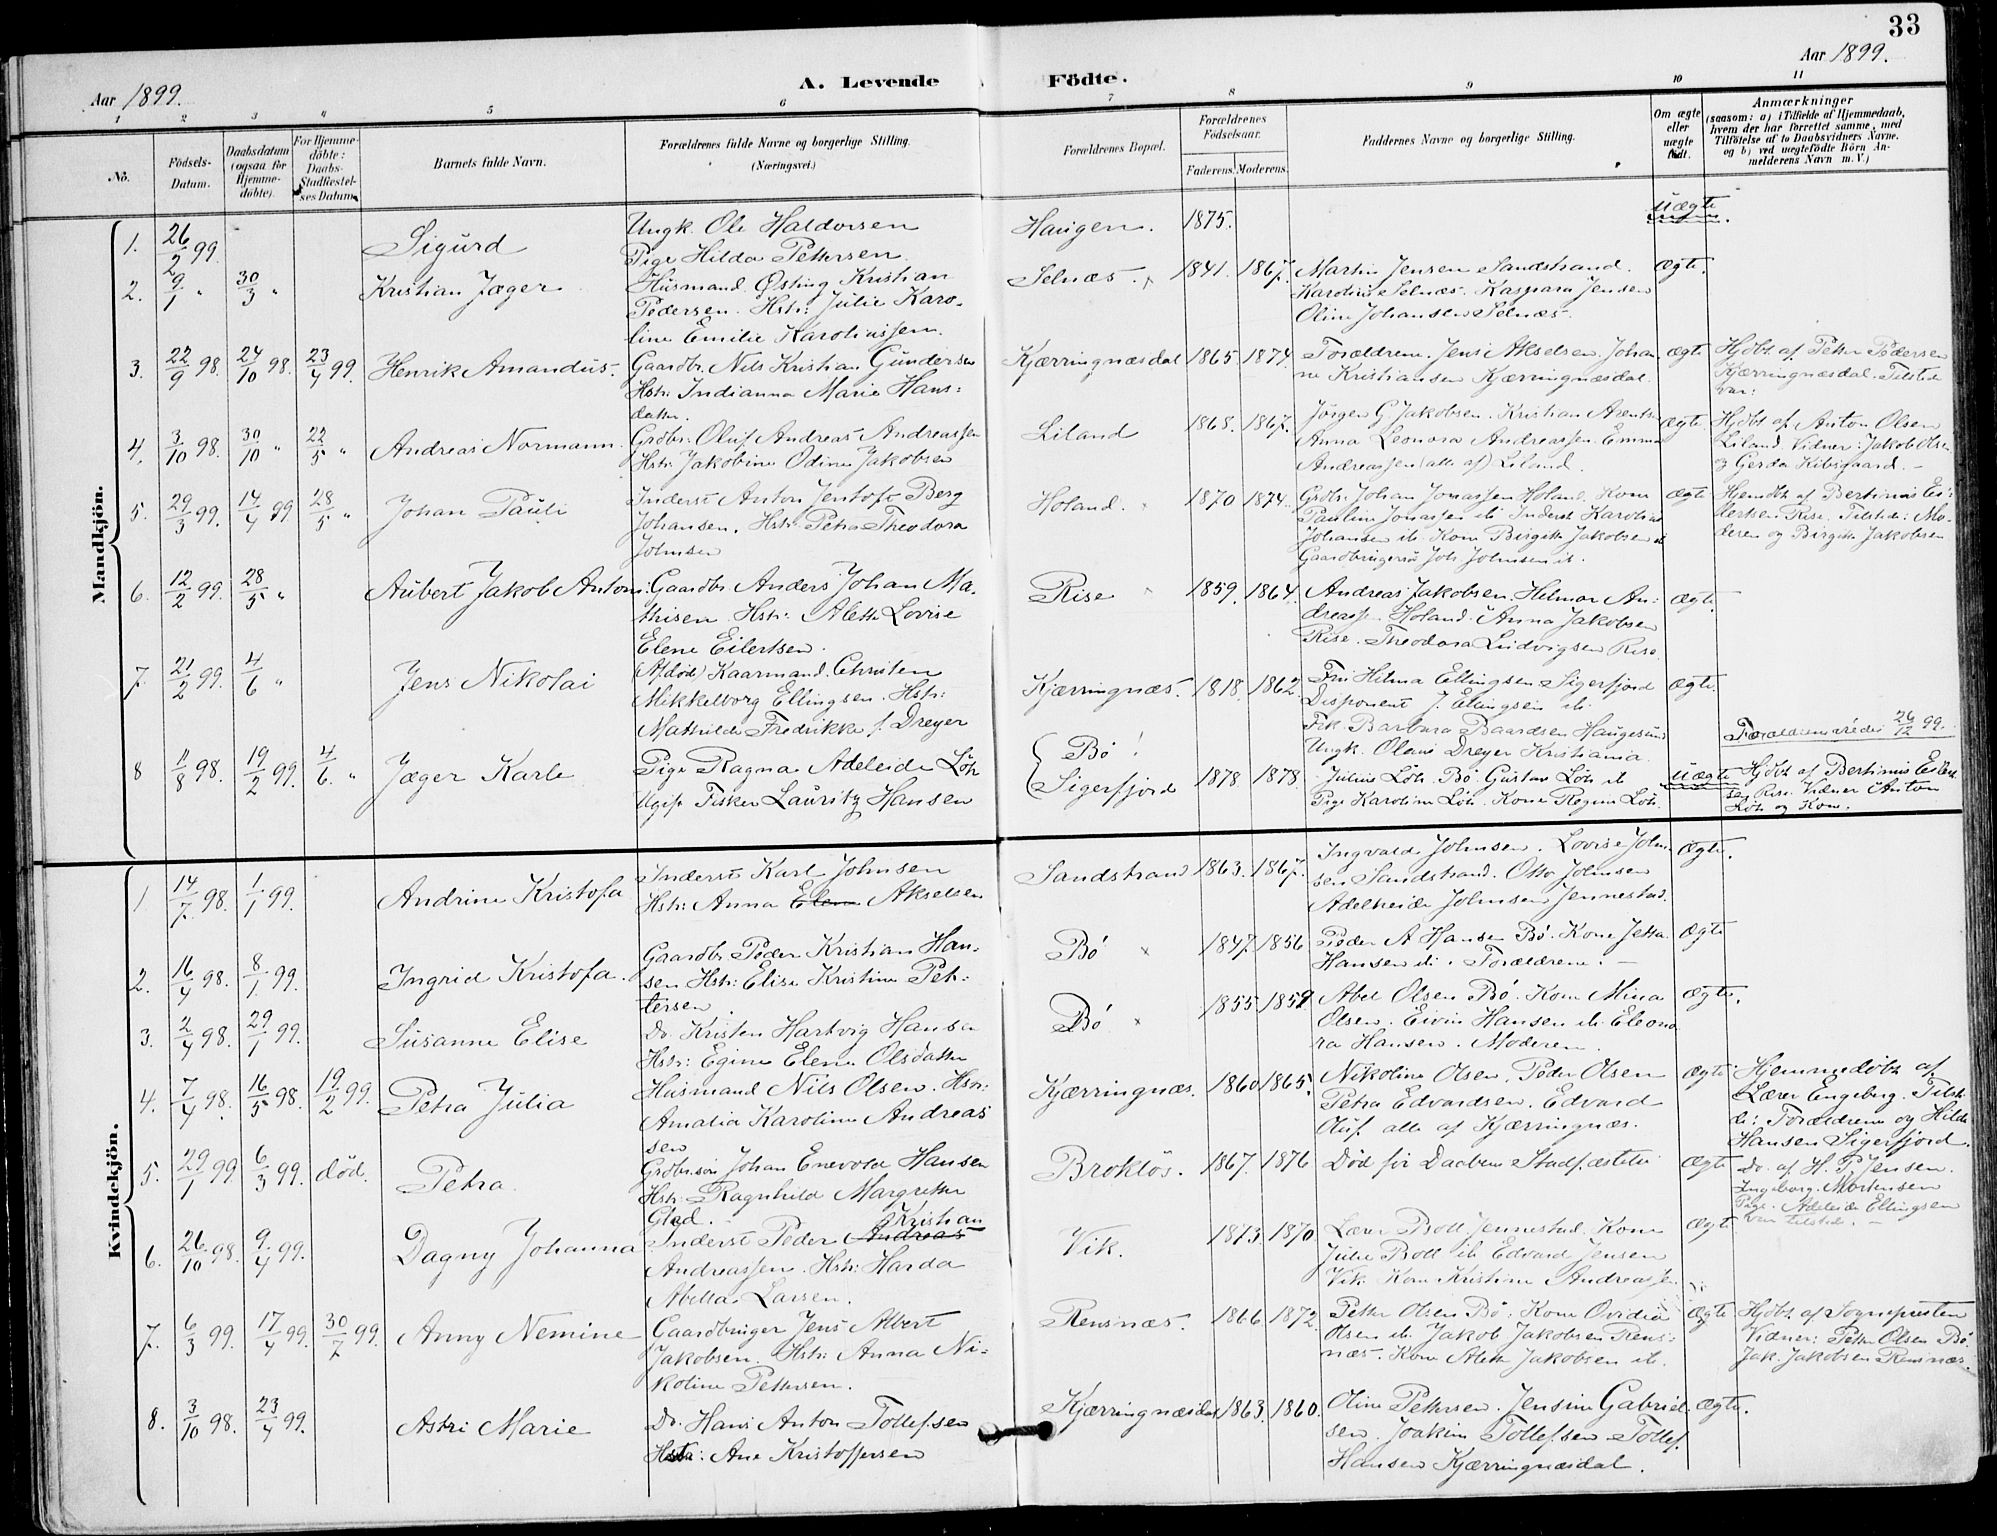 33
Aar 1899.
A. Levende
Födte.
Aar 1899.
1 2 3 4 5 6 7 8 9 10 11
No.
Födsels-
Datum.
Daabsdatum
(ogsaa for
Hjemme-
döbte).
For Hjemme-
döbte:
Daabs-
Stadfæstel-
ses Datum.
Barnets fulde Navn.
Forældrenes fulde Navne og borgerlige Stilling.
(Næringsvei.)
Forældrenes Bopæl.
Forældrenes
Födselsaar.
Faderens. Moderens.
Faddernes Navne og borgerlige Stilling.
Om ægte
eller
uægte
født.
Anmærkninger
(saasom: a) i Tilfælde af Hjemmedaab,
hvem der har forrettet samme, med
Tilföielse af to Daabsvidners Navne,
og b) ved uægtefödte Börn An-
melderens Navn m. V.)
Mandkjön.
1. 26/2 99. Sigurd
Ungk. Ole Haldorsen
Pige Hilda Pettersen.
Haugen. 1875. uægte
2. 9/1 " 30/3 " Kristian Jæger
Husmand Østing Kristian
Pedersen. Hstr: Julie Karo-
line Emilie Karoliussen.
Selnæs. 1841. 1867.
Martin Jensen Sandstrand.
Karolius Selnæs. Kaspara Jensen
Oline Johansen Selnæs.
ægte.
3. 22/9 98. 24/10 98. 23/4 99. Henrik Amandus.
Gaardbr. Nils Kristian Gundersen
Hstr: Indianna Marie Hans:
datter.
Kjærringnæsdal 1865 1874.
Forældrene. Jens Akselsen. Johan
ne Kristiansen Kjærringnæsdal.
ægte
Hjdbt. af Petter Pedersen
Kjærringnæsdal. Tilstede
var:
4. 3/10 98. 30/10 " 22/5 " Andreas Normann.
Grdbr: Oluf Andreas Andreassen
Hstr: Jakobine Odine Jakobsen
Liland 1868. 1867.
Jørgen G. Jakobsen. Kristian Arentsen
Anna Leonora Andreassen. Emma
Andreassen (alle af) Liland.
ægte.
Hjdbt af. Anton Olsen
Liland. Vidner: Jakob Olsen
og Gerda Kibsgaard. -
5. 29/3 99. 14/4 99 28/5 " Johan Pauli
Inderst Anton Jentoft Berg
Johansen. Hstr: Petra Theodora
Johnsen
Holand. 1870 1874.
Grdbr. Johan Jonassen Holand. Kone
Pauline Jonassen ib. Inderst Karolius
Johansen ib. Kone Birgitte Jakobsen ib
Gaardbrugersøn Joh. Johnsen ib.
ægte
Hjemdbt af Bertinius Ei-
lertsen Rise. Tilstede: Mo-
deren og Birgitte Jakobsen
6. 12/2 99. 28/5 " Aubert Jakob Anton
Gaardbr Anders Johan Ma-
thisen. Hstr: Alette Lovise
Elene Eilertsen.
Rise 1859. 1864.
Andreas Jakobsen, Helmar An-
dreass. Holand. Anna Jakobsen
Rise. Theodora Ludvigsen Rise.
ægte.
7. 21/2 99. 4/6 " Jens Nikolai
(Afdød) Kaarmand. Christen
Mikkelborg Ellingsen. Hstr:
Mathilde Fredrikke f. Dreyer
Kjærringnæs. 1818. 1862.
Fru Hilma Ellingsen Sigerfjord
Disponent J. Ellingsen ib.
Frk. Barbara Baardsen Haugesund
Ungk. Olaus Dreyer Kristiania.
ægte.
Forældrene viede 26/12 99.
8 11/8 98. 19/2 99. 4/6. " Jæger Karle
Pige Ragna Adeleide Löh
Ugift Fisker Lauritz Hansen
Bø
Sigerfjord 1878. 1878.
Julius Löh. Bø. Gustav Löh ib
Pige Karoline Löh. Kone Regine Löh.
uægte
Hjdbt af Bertinius Eilert-
sen Rise. Vidner Anton
Löh og Kone.
Kvindekjön.
1 14/7 98. 1/1 99. Andrine Kristofa
Inderst Karl Johnsen
Hstr: Anna Elene Akselsen
Sandstrand 1863. 1867.
Ingvald Johnsen. Lovise John-
sen Sandstrand. Otto Johnsen
Adelheide Johnsen Jennestad.
ægte.
2. 16/4 98. 8/1 99. Ingrid Kristofa.
Gaardbr. Peder Kristian Han-
sen Hstr: Elise Kristine Pet-
tersen.
Bø 1847. 1856
Peder A Hansen Bø. Kone Jetta
Hansen ib. Forældrene. -
ægte
3. 2/4 98. 29/1 99. Susanne Elise
Do. Kristen Hartvig Hansen
Hstr: Egine Elene Olsdatter
Bø 1855. 1859.
Abel Olsen Bø. Kone Mina
Olsen. Eivin Hansen ib. Eleono
ra Hansen. Moderen.
ægte.
4. 7/4 98. 16/5 98. 19/2 99. Petra Julia
Husmand Nils Olsen. Hstr:
Amalia Karoline Andreas
sen
Kjærringnæs. 1860 1865.
Nikoline Olsen. Peder Olsen
Petra Edvardsen. Edvard
Oluf. alle af Kjærringnæs.
ægte
Hjemmedöbt af
Lærer Engeberg. Tilste
de: Forældrene og Hilda
Hansen Sigerfjord.
5. 29/1 99. 6/3 99. död. Petra
Grdbrsøn Johan Enevold Hansen
Hstr: Ragnhild Margrethe
Glad.
Brokløs. 1867. 1876
Død før Daabens Stadfæstelse
ægte
Do. af H. P. Jensen.
Ingeborg Mortensen
Pige Adeleide Ellingsen
var tilstede. -
6. 26/10 98. 9/4 99. Dagny Johanna
Kristian
Inderst Peder Andreas
Andreassen. Hstr: Harda
Abella Larsen.
Vik. 1873. 1870.
Lærer Boll Jennestad. Kone
Julie Boll ib Edvard Jensen
Vik. Kone Kristine Andreassen
ægte
7. 6/3 99. 17/4 99. 30/7 99. Anny Nemine
Gaardbruger Jens Albert
Jakobsen. Hstr: Anna Ni-
koline Pettersen.
Rensnæs. 1866. 1872.
Petter Olsen Bø. Kone Ovidia
Olsen ib. Jakob Jakobsen Rens-
næs. Kone Alette Jakobsen ib.
ægte
Hjdbt. af Sognepresten
Vidner: Petter Olsen Bø
Jak. Jakobsen Rensnæs.
8. 3/10 98. 23/4 99. Astri Marie
Do. Hans Anton Tollefsen
Hstr: Ane Kristoffersen
Kjærringnæsdal 1863. 1860.
Oline Pettersen. Jensine Gabriel-
sen. Joakim Tollefsen Tollef
Hansen Kjærringnæsdal.
ægte.